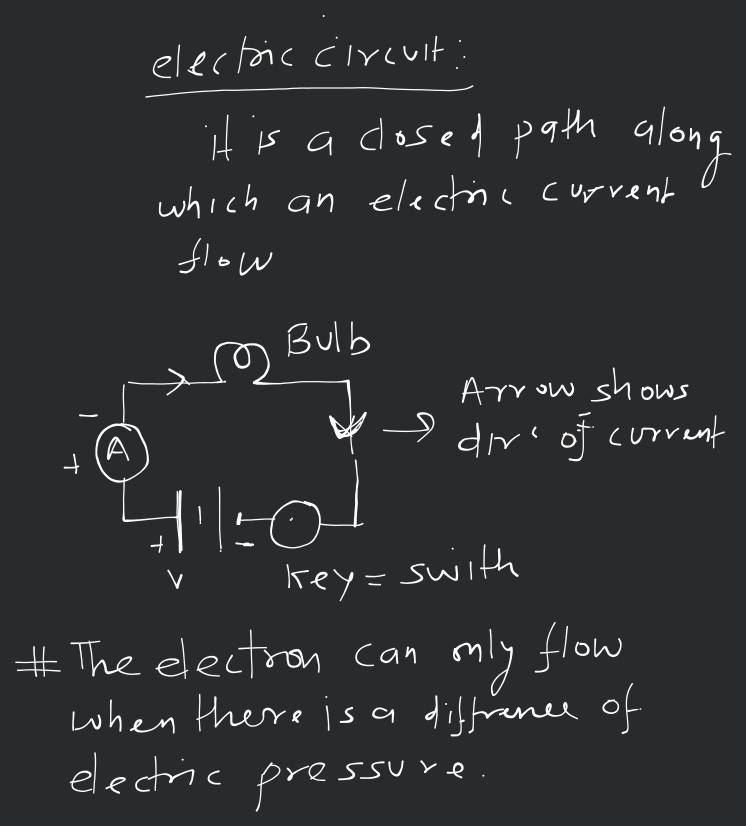 electric circuit:
it is a closed path along
which an electric current
flow
Bulb
Arrow shows
dirⁿ of current
-
A
+
+
-
V
Key = swith
# The electron can only flow
when there is a diffrance of
electric pressure.